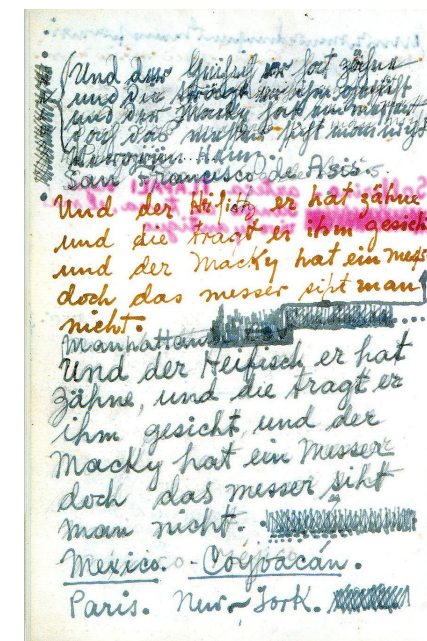 (Und der Heifisch er hat zähne
und die trägt er ihm gesicht
und der Macky hat ein messer
doch das messer sicht man nicht
Heim).
San Francisco de Asis.
Und der Heifisch er hat zähne
und die tragt er ihm gesich
und der Macky hat ein mess
doch das messer siht man
nicht.
Manhattan
Und der Heifisch, er hat
zähne, und die tragt er
ihm gesicht, und der
Macky hat ein Messer
doch das messer siht
man nicht.
Mexico. - Coyoacán.
Paris. New-York.